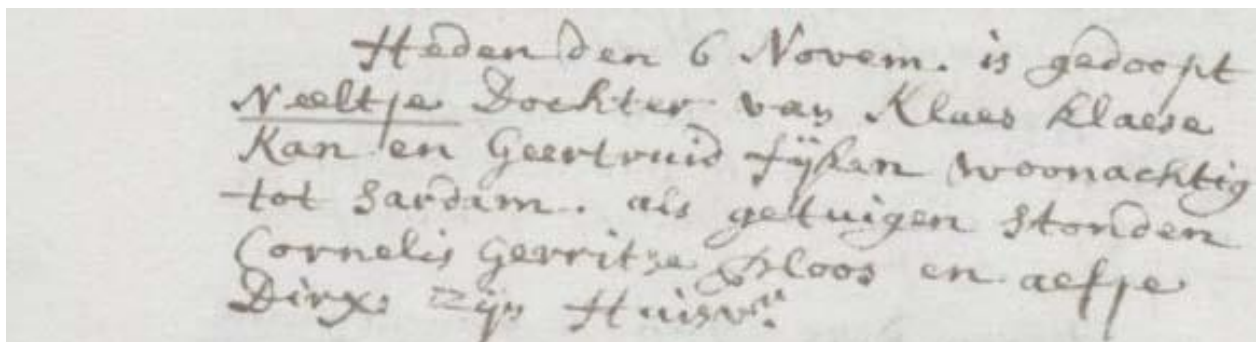 Heden den 6 Novem. is gedoopt
Neeltje Dochter van Klaes Klaese
Kan en Geertruid woonachtig
tot Sardam. als getuigen stonden
Cornelis Gerritze en aefje
Dirx zijn Huisvr.